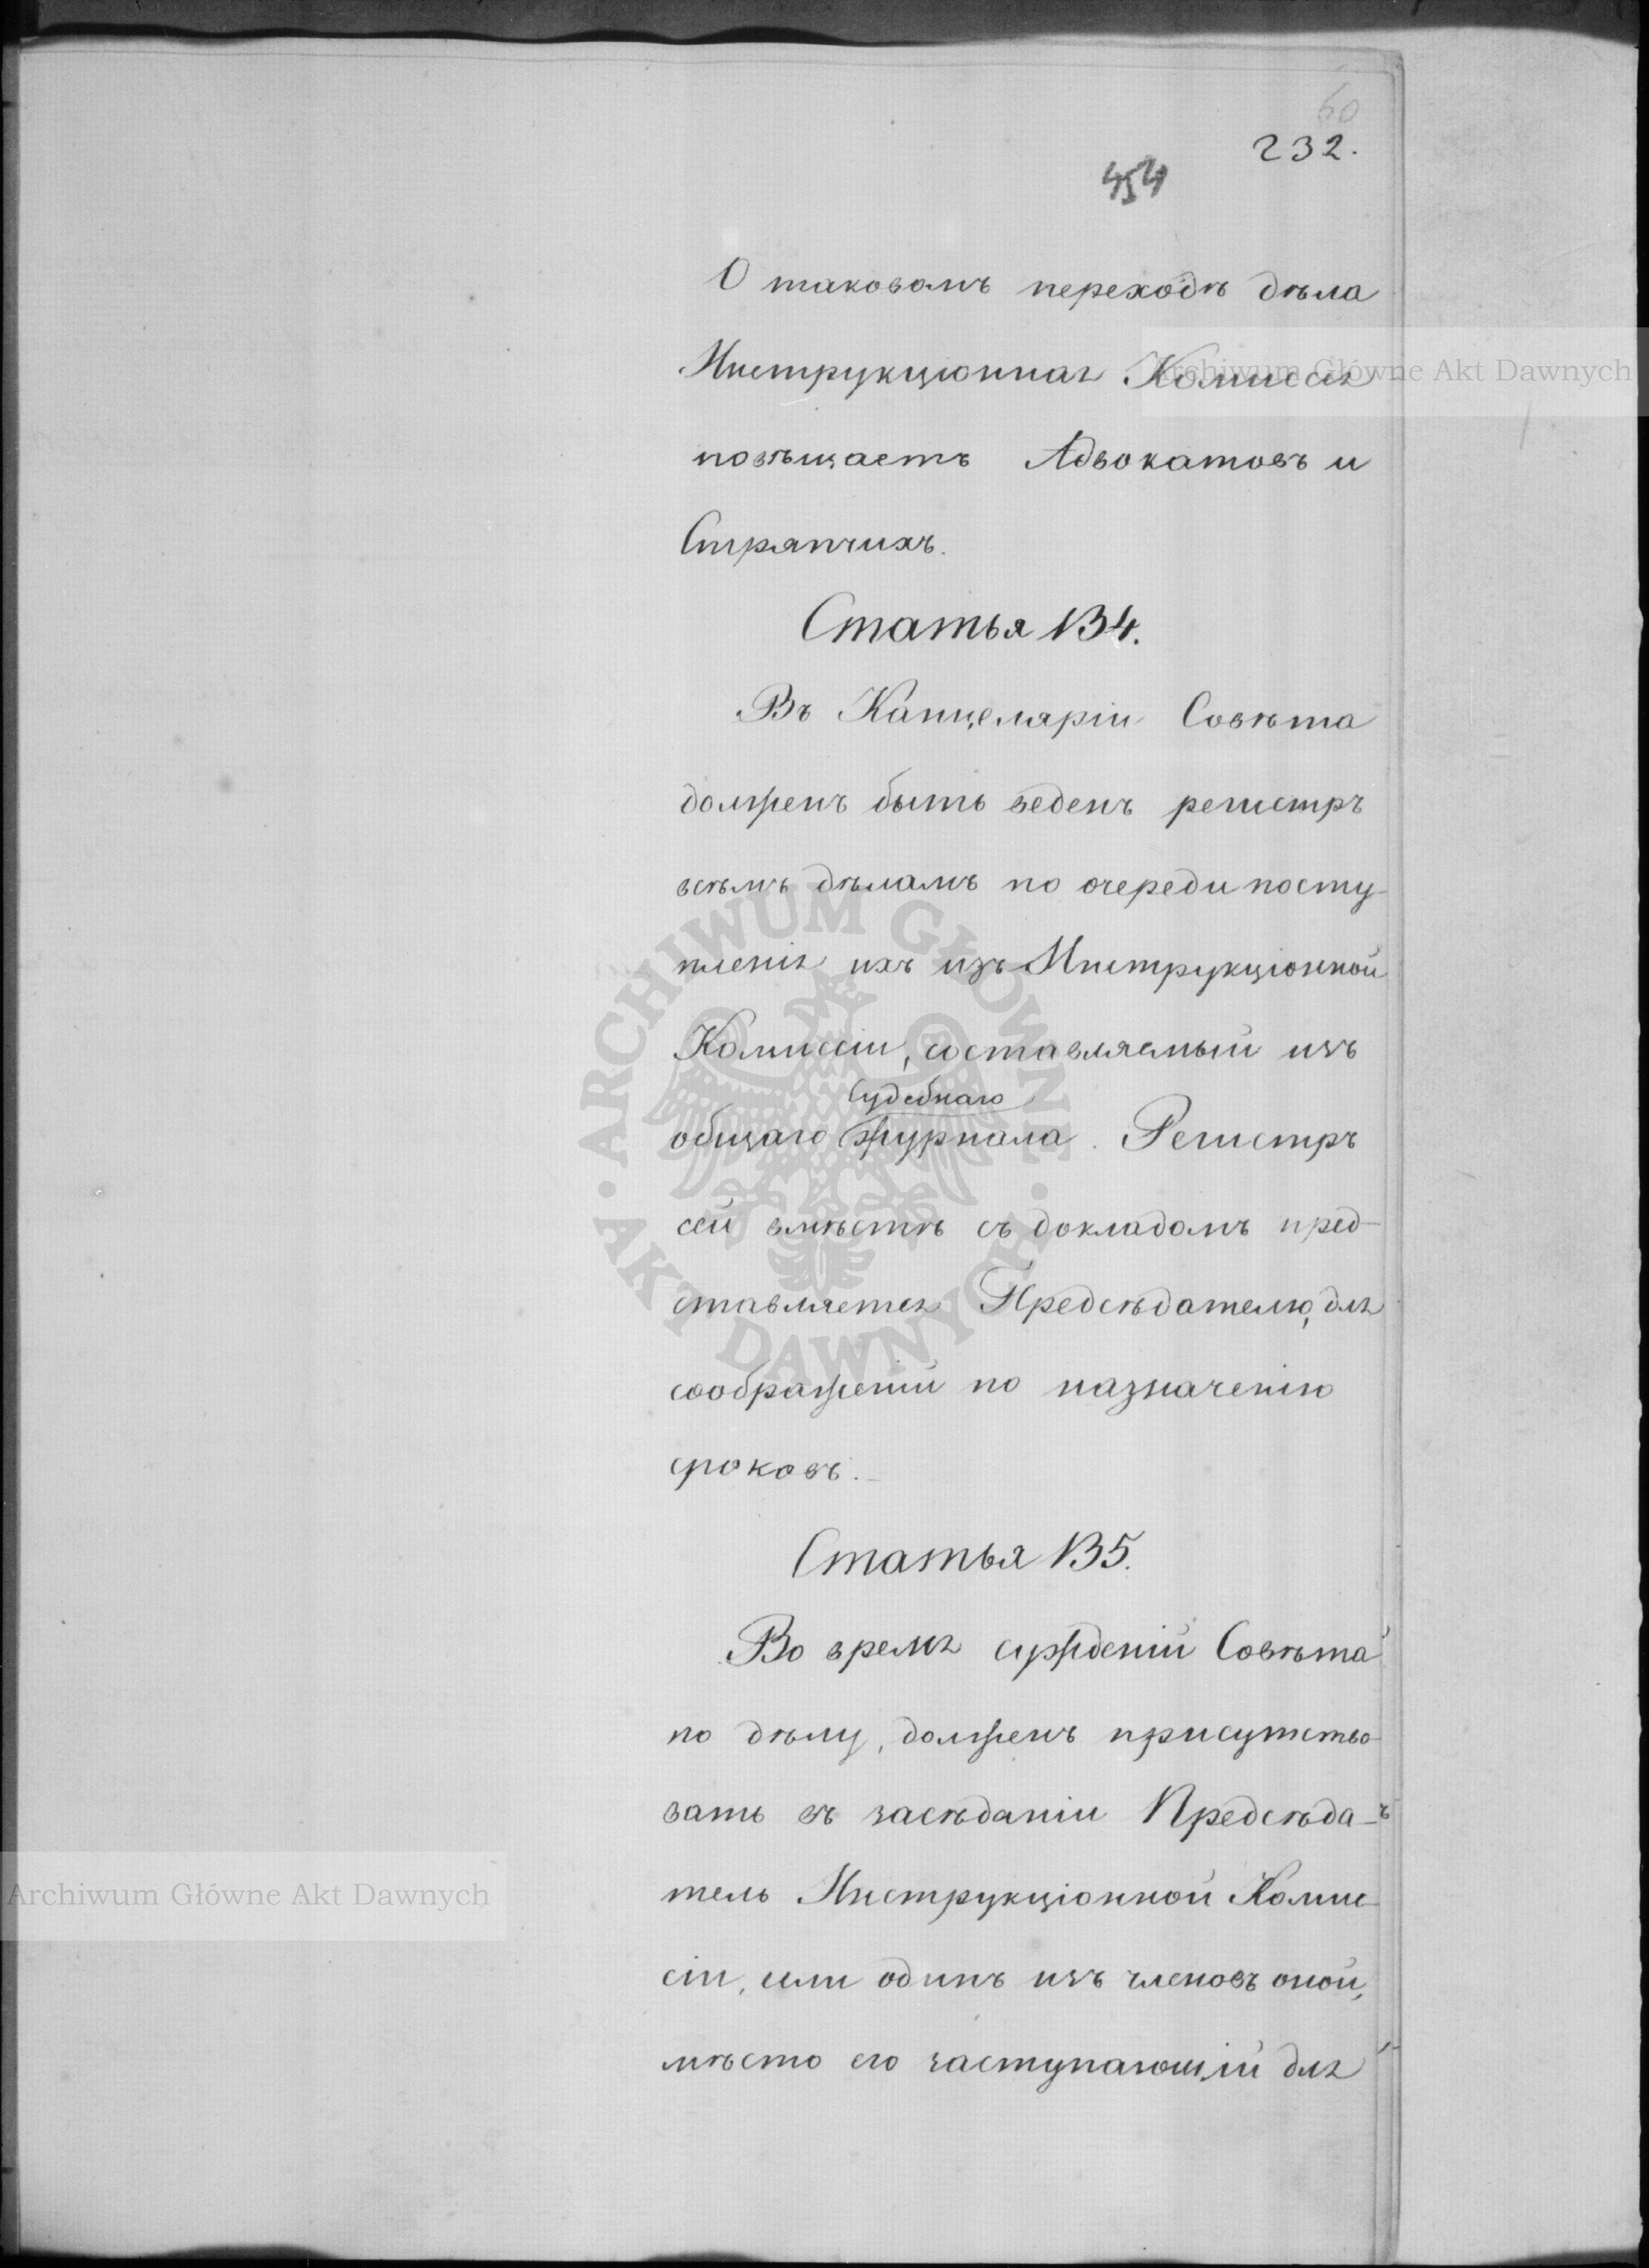 60
232.
454
О таковомъ переходѣ дѣла
Инструкціонная Комиссія
повѣщаетъ Адвокатовъ и
Стряпчихъ.
Статья 134.
Въ Канцеляріи Совѣта
долженъ быть веденъ регистръ
всѣмъ дѣламъ по очереди посту-
пленія ихъ изъ Инструкціонной
Комиссіи, составляемый изъ
Судебнаго
общаго журнала. Регистръ
сей вмѣстѣ съ докладомъ пред-
ставляется Предсѣдателю, для
соображеній по назначенію
сроковъ.
Статья 135.
Во время сужденій Совѣта
по дѣлу, долженъ присутство-
вать въ засѣданіи Предсѣда-
тель Инструкціонной Комис-
сіи, или одинъ изъ членовъ оной,
мѣсто его заступающій для
Archiwum Główne Akt Dawnych
Archiwum Główne Akt Dawnych
ARCHIWUM GŁÓWNE
AKT DAWNYCH